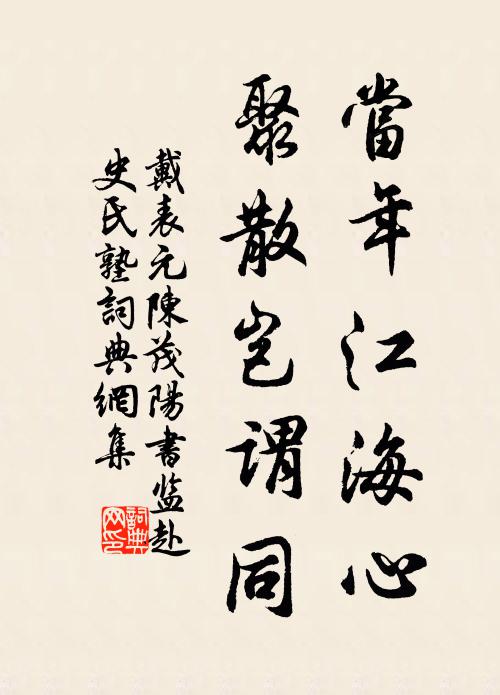 當年江海心
聚散豈謂同
戴表元陳茂陽書監赴
史氏塾詞典網集
詞典網印